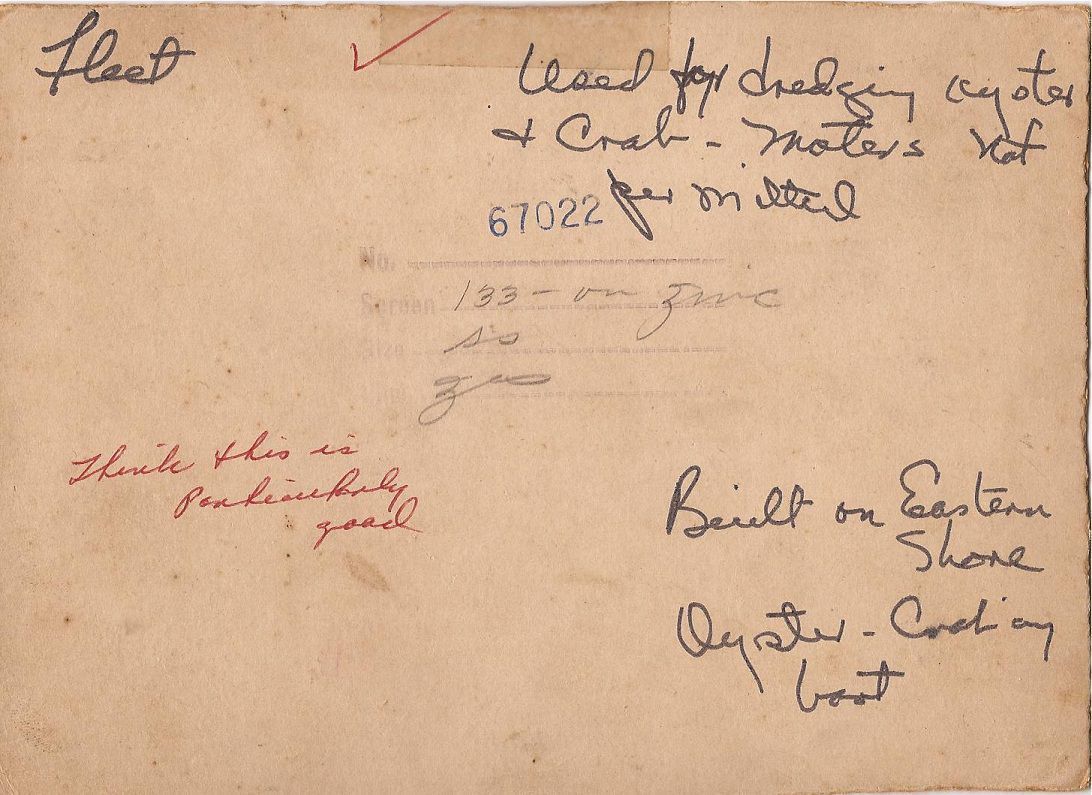 Fleet
Used for dredging oyster
& Crab - Moters not
permitted
67022
No.
Screen 133 - on zinc
Size ss
Think this is
particularly
good
Built on Eastern
Shore
Oyster - Crabing
boat